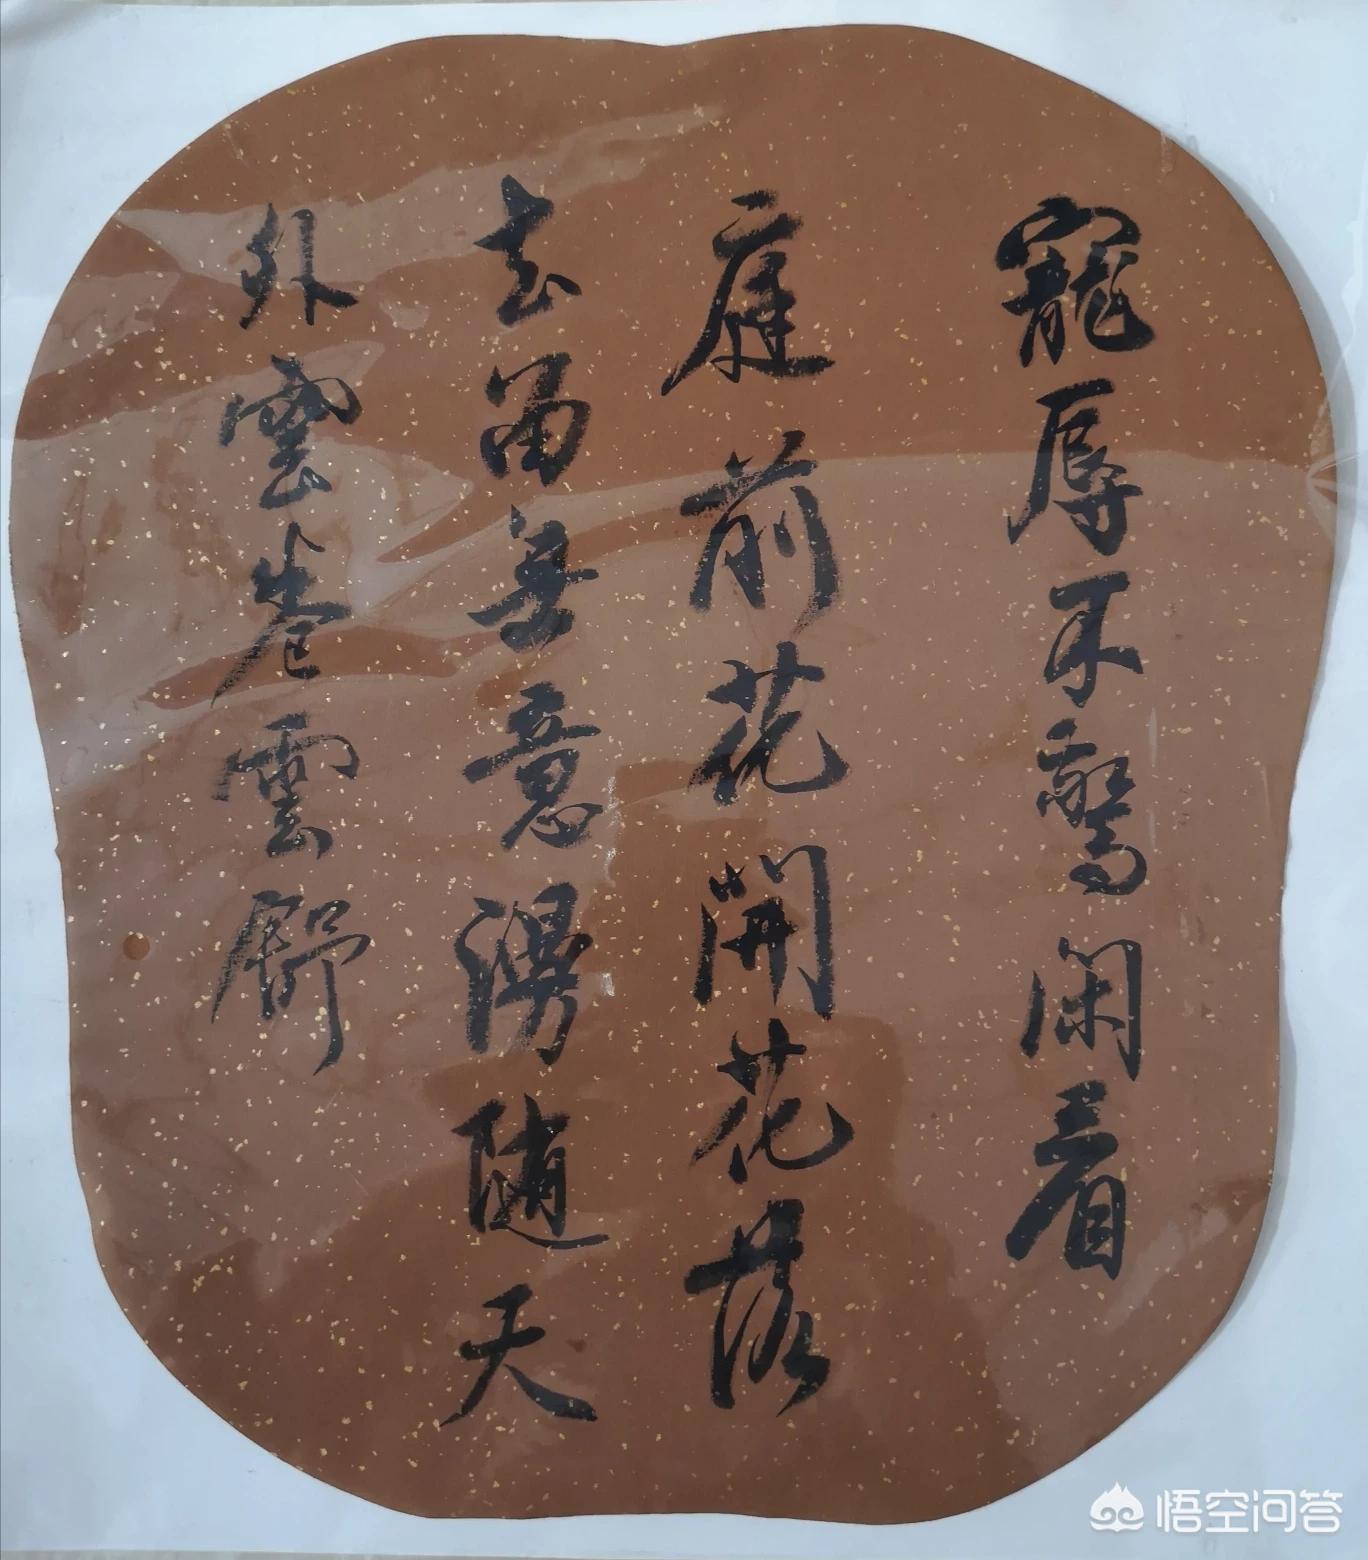 寵辱不驚閑看
庭前花開花落
去留無意漫随天
外雲卷雲舒
悟空问答